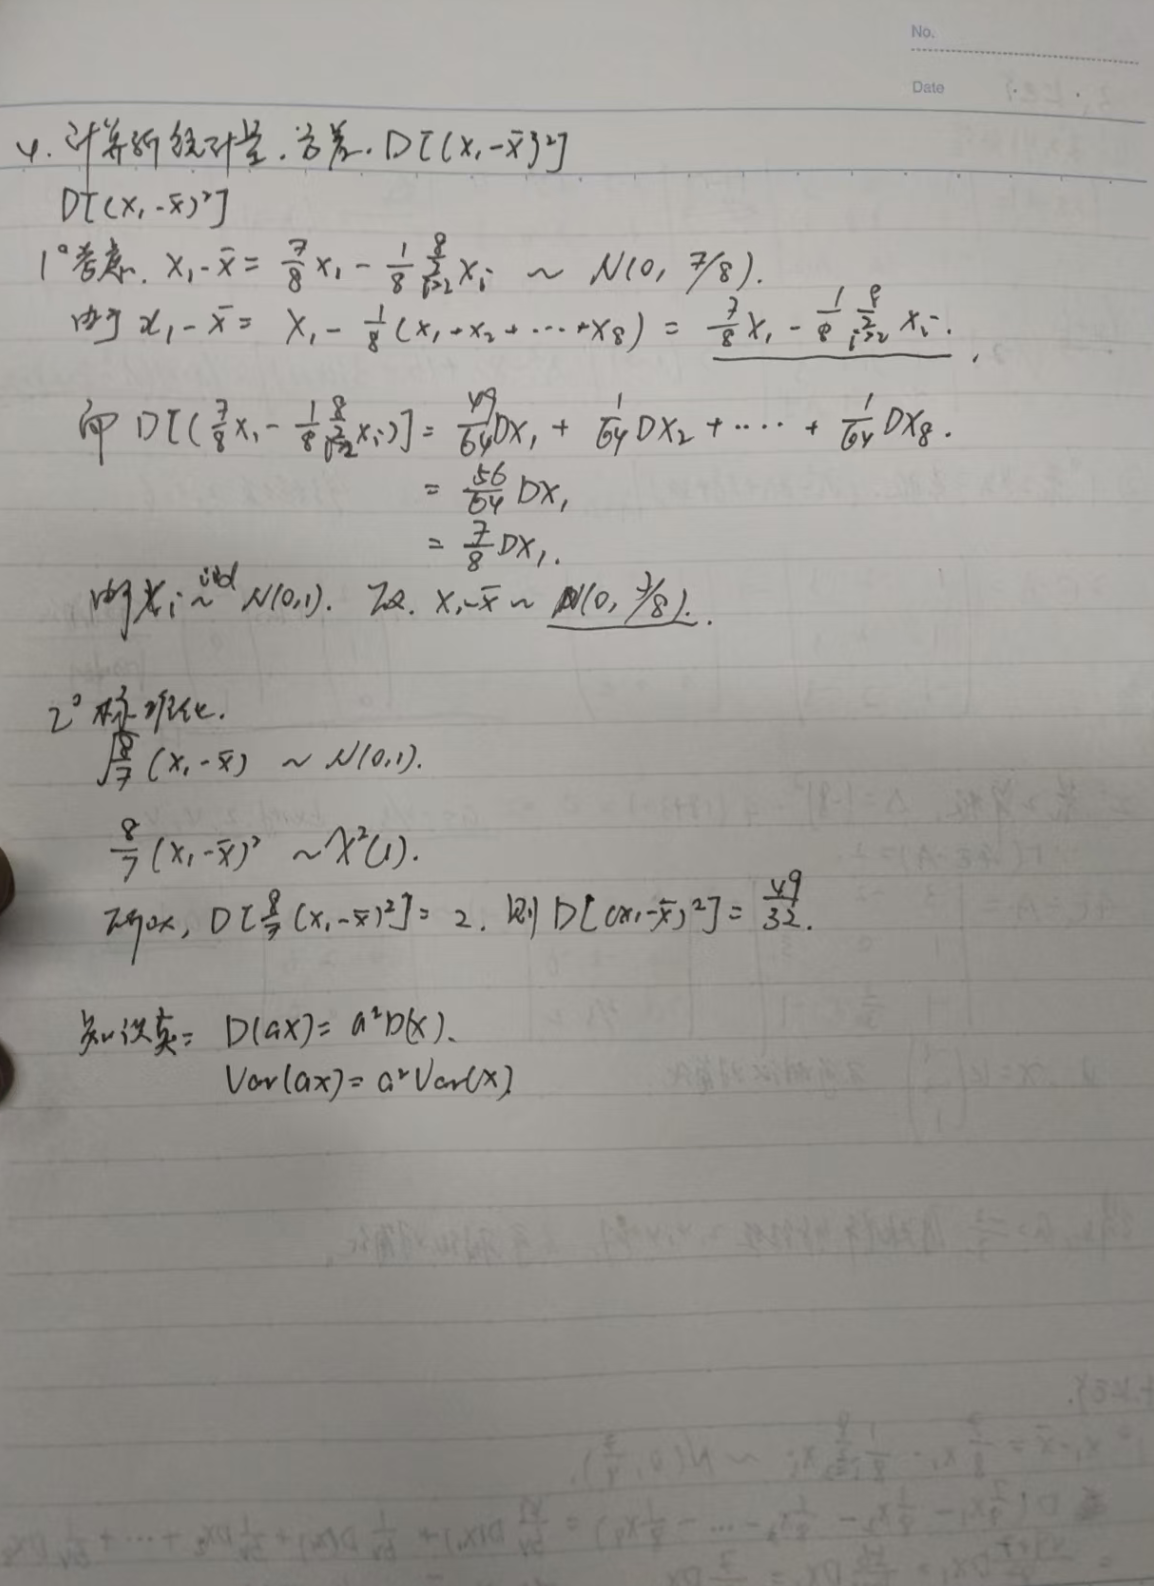 No.
Date
4. 计算新统计量.方差. D[(x₁-x̄)²]
D[(x₁-x̄)²]
1° 考虑. x₁-x̄ = 7/8 x₁ - 1/8 Σ_{i=2}^{8} xᵢ ~ N(0, 7/8).
由于 x₁-x̄ = x₁ - 1/8 (x₁+x₂+⋯+x₈) = 7/8 x₁ - 1/8 Σ_{i=2}^{8} xᵢ.
即 D[(7/8 x₁ - 1/8 Σ_{i=2}^{8} xᵢ)] = 49/64 DX₁ + 1/64 DX₂ + ⋯ + 1/64 DX₈.
= 56/64 DX₁
= 7/8 DX₁.
由于 xᵢ iid~ N(0,1). x₁-x̄ ~ N(0, 7/8).
2° 标准化.
√(8/7) (x₁-x̄) ~ N(0,1).
8/7 (x₁-x̄)² ~ χ²(1).
D[8/7 (x₁-x̄)²] = 2. 则 D[(x₁-x̄)²] = 49/32.
知识点: D(ax) = a²D(x).
Var(ax) = a²Var(x)